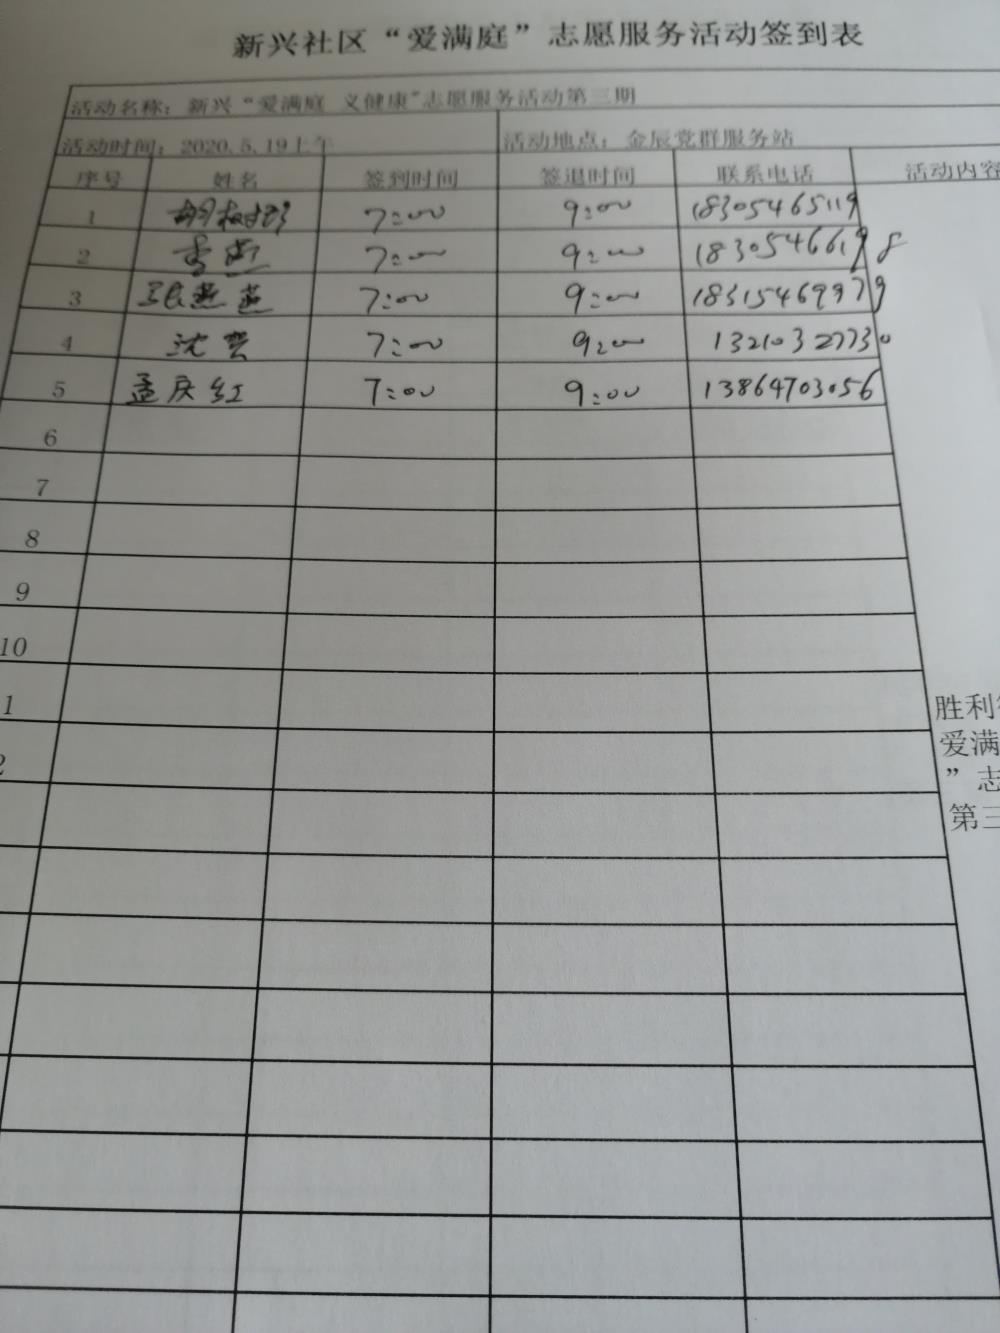 新兴社区“爱满庭”志愿服务活动签到表
活动名称：新兴“爱满庭 义健康”志愿服务活动第三期
活动时间：2020.5.19上午 活动地点：金辰党群服务站
序号 姓名 签到时间 签退时间 联系电话 活动内容
1 7:00 9:00 18305465119
2 李燕 7:00 9:00 18305466198
3 张燕燕 7:00 9:00 18315469979
4 沈 7:00 9:00 13210327730
5 孟庆红 7:00 9:00 13864703056
6
7
8
9
10
1
2
胜利
爱满
”志
第三